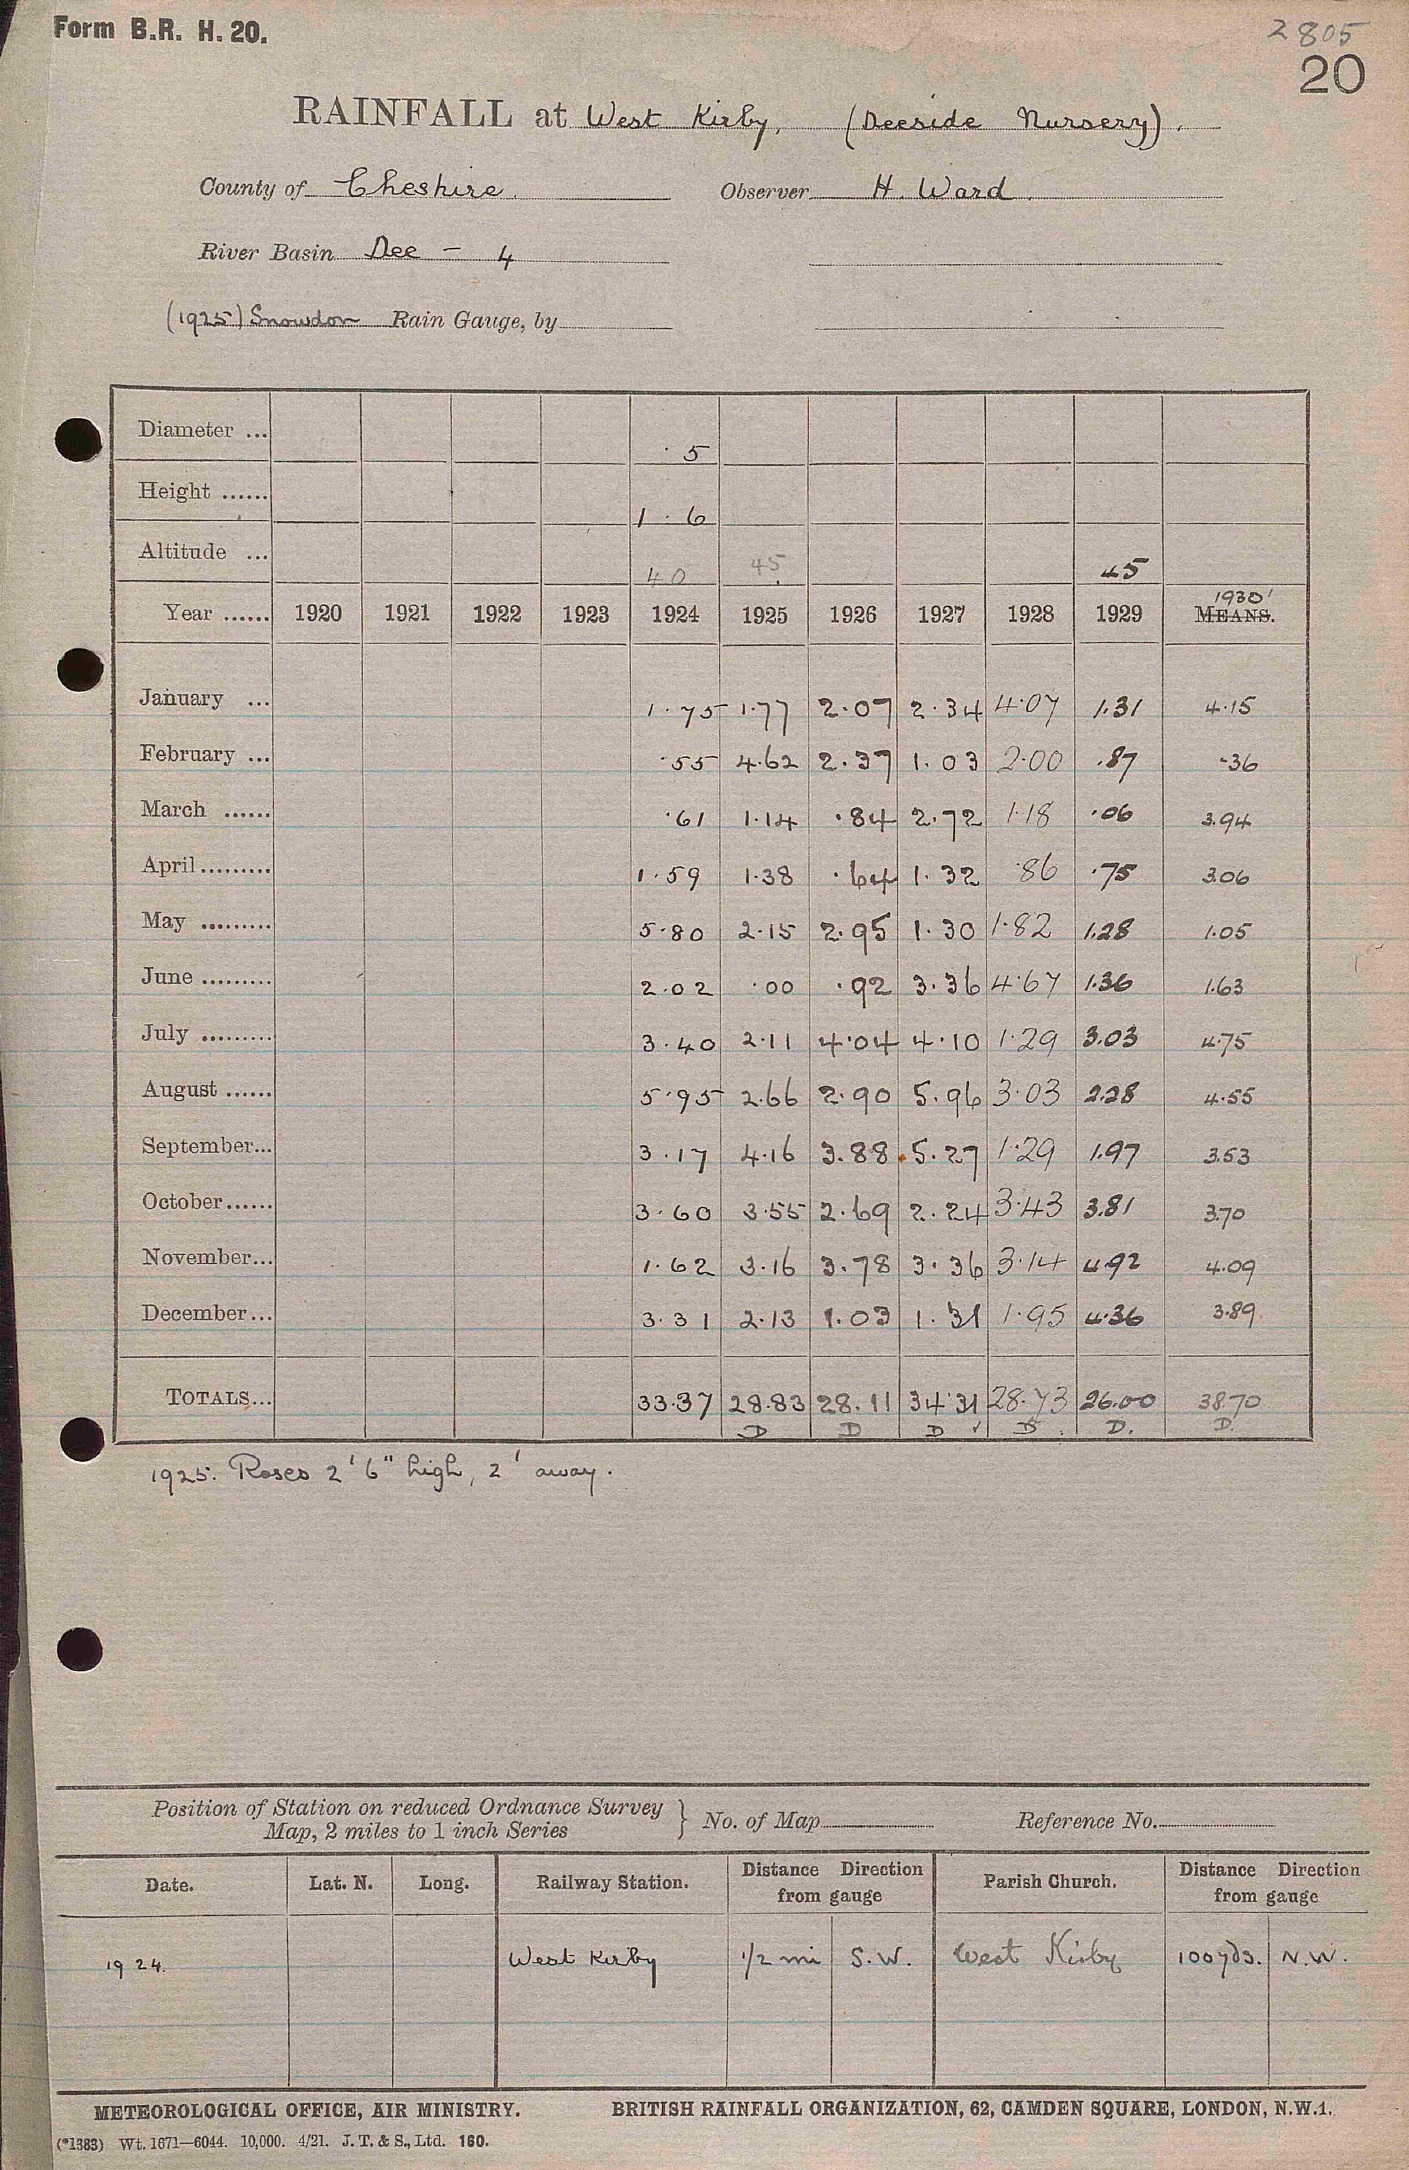 Form B.R. H. 20.
2805
20
RAINFALL at West Kirby, (Deeside Nursery).
County of Cheshire. Observer H. Ward.
River Basin Dee - 4
(1925) Snowdon Rain Gauge, by
Diameter ... 5
Height ...... 1 . 6
Altitude ... 40 45 45
1930
Year ...... 1920 1921 1922 1923 1924 1925 1926 1927 1928 1929 MEANS.
January ... 1.75 1.77 2.07 2.34 4.07 1.31 4.15
February ... .55 4.62 2.37 1.03 2.00 .87 .36
March ...... .61 1.14 .84 2.72 1.18 .06 3.94
April ......... 1.59 1.38 .64 1.32 .86 .75 3.06
May ......... 5.80 2.15 2.95 1.30 1.82 1.28 1.05
June ......... 2.02 .00 .92 3.36 4.67 1.36 1.63
July ......... 3.40 2.11 4.04 4.10 1.29 3.03 4.75
August ...... 5.95 2.66 2.90 5.96 3.03 2.28 4.55
September... 3.17 4.16 3.88 5.27 1.29 1.97 3.53
October...... 3.60 3.55 2.69 2.24 3.43 3.81 3.70
November... 1.62 3.16 3.78 3.36 3.14 4.92 4.09
December... 3.31 2.13 1.03 1.31 1.95 4.36 3.89
TOTALS... 33.37 28.83 28.11 34.31 28.73 26.00 38.70
D D D ✓ D D. D.
1925. Roses 2' 6" high, 2' away.
Position of Station on reduced Ordnance Survey
Map, 2 miles to 1 inch Series } No. of Map Reference No.
Date. Lat. N. Long. Railway Station. Distance Direction from gauge Parish Church. Distance Direction from gauge
1924. West Kirby 1/2 mi S.W. West Kirby 100 yds. N.W.
METEOROLOGICAL OFFICE, AIR MINISTRY. BRITISH RAINFALL ORGANIZATION, 62, CAMDEN SQUARE, LONDON, N.W.1.
(*1383) Wt. 1671—6044. 10,000. 4/21. J. T. & S., Ltd. 160.